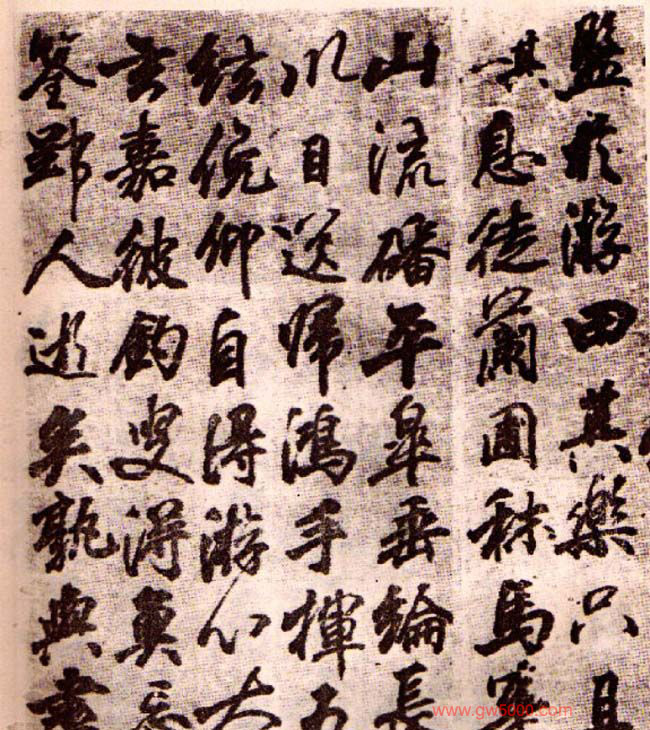 盤於游田其樂只且
其一息徒蘭圃秣馬華
山流磻平皋垂綸長
川目送歸鴻手揮五
絃俛仰自得游心太
玄嘉彼釣叟得魚忘
筌郢人逝矣孰與盡
www.gw5000.com